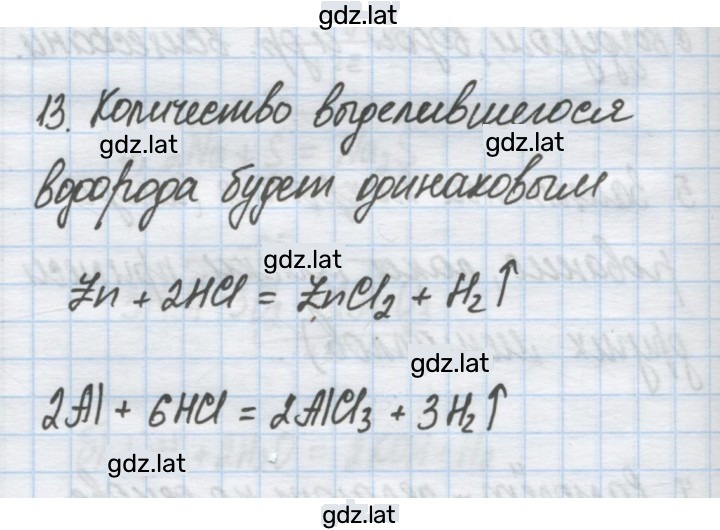 gdz.lat
13. Количество выделившегося
gdz.lat gdz.lat
водорода будет одинаковым
gdz.lat
Zn + 2HCl = ZnCl₂ + H₂↑
gdz.lat
2Al + 6HCl = 2AlCl₃ + 3H₂↑
gdz.lat
gdz.lat